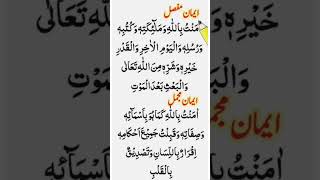 ایمان مفصل
اٰمَنْتُ بِاللّٰهِ وَمَلٰٓئِکَتِهٖ وَکُتُبِهٖ
وَرُسُلِهٖ وَالْیَوْمِ الْاٰخِرِ وَالْقَدْرِ
خَیْرِهٖ وَشَرِّهٖ مِنَ اللّٰهِ تَعَالٰی
وَالْبَعْثِ بَعْدَ الْمَوْتِ
ایمان مجمل
اٰمَنْتُ بِاللّٰهِ کَمَا هُوَ بِاَسْمَآئِهٖ
وَصِفَاتِهٖ وَقَبِلْتُ جَمِیْعَ اَحْکَامِهٖ
اِقْرَارٌ بِاللِّسَانِ وَتَصْدِیْقٌ
بِالْقَلْبِ